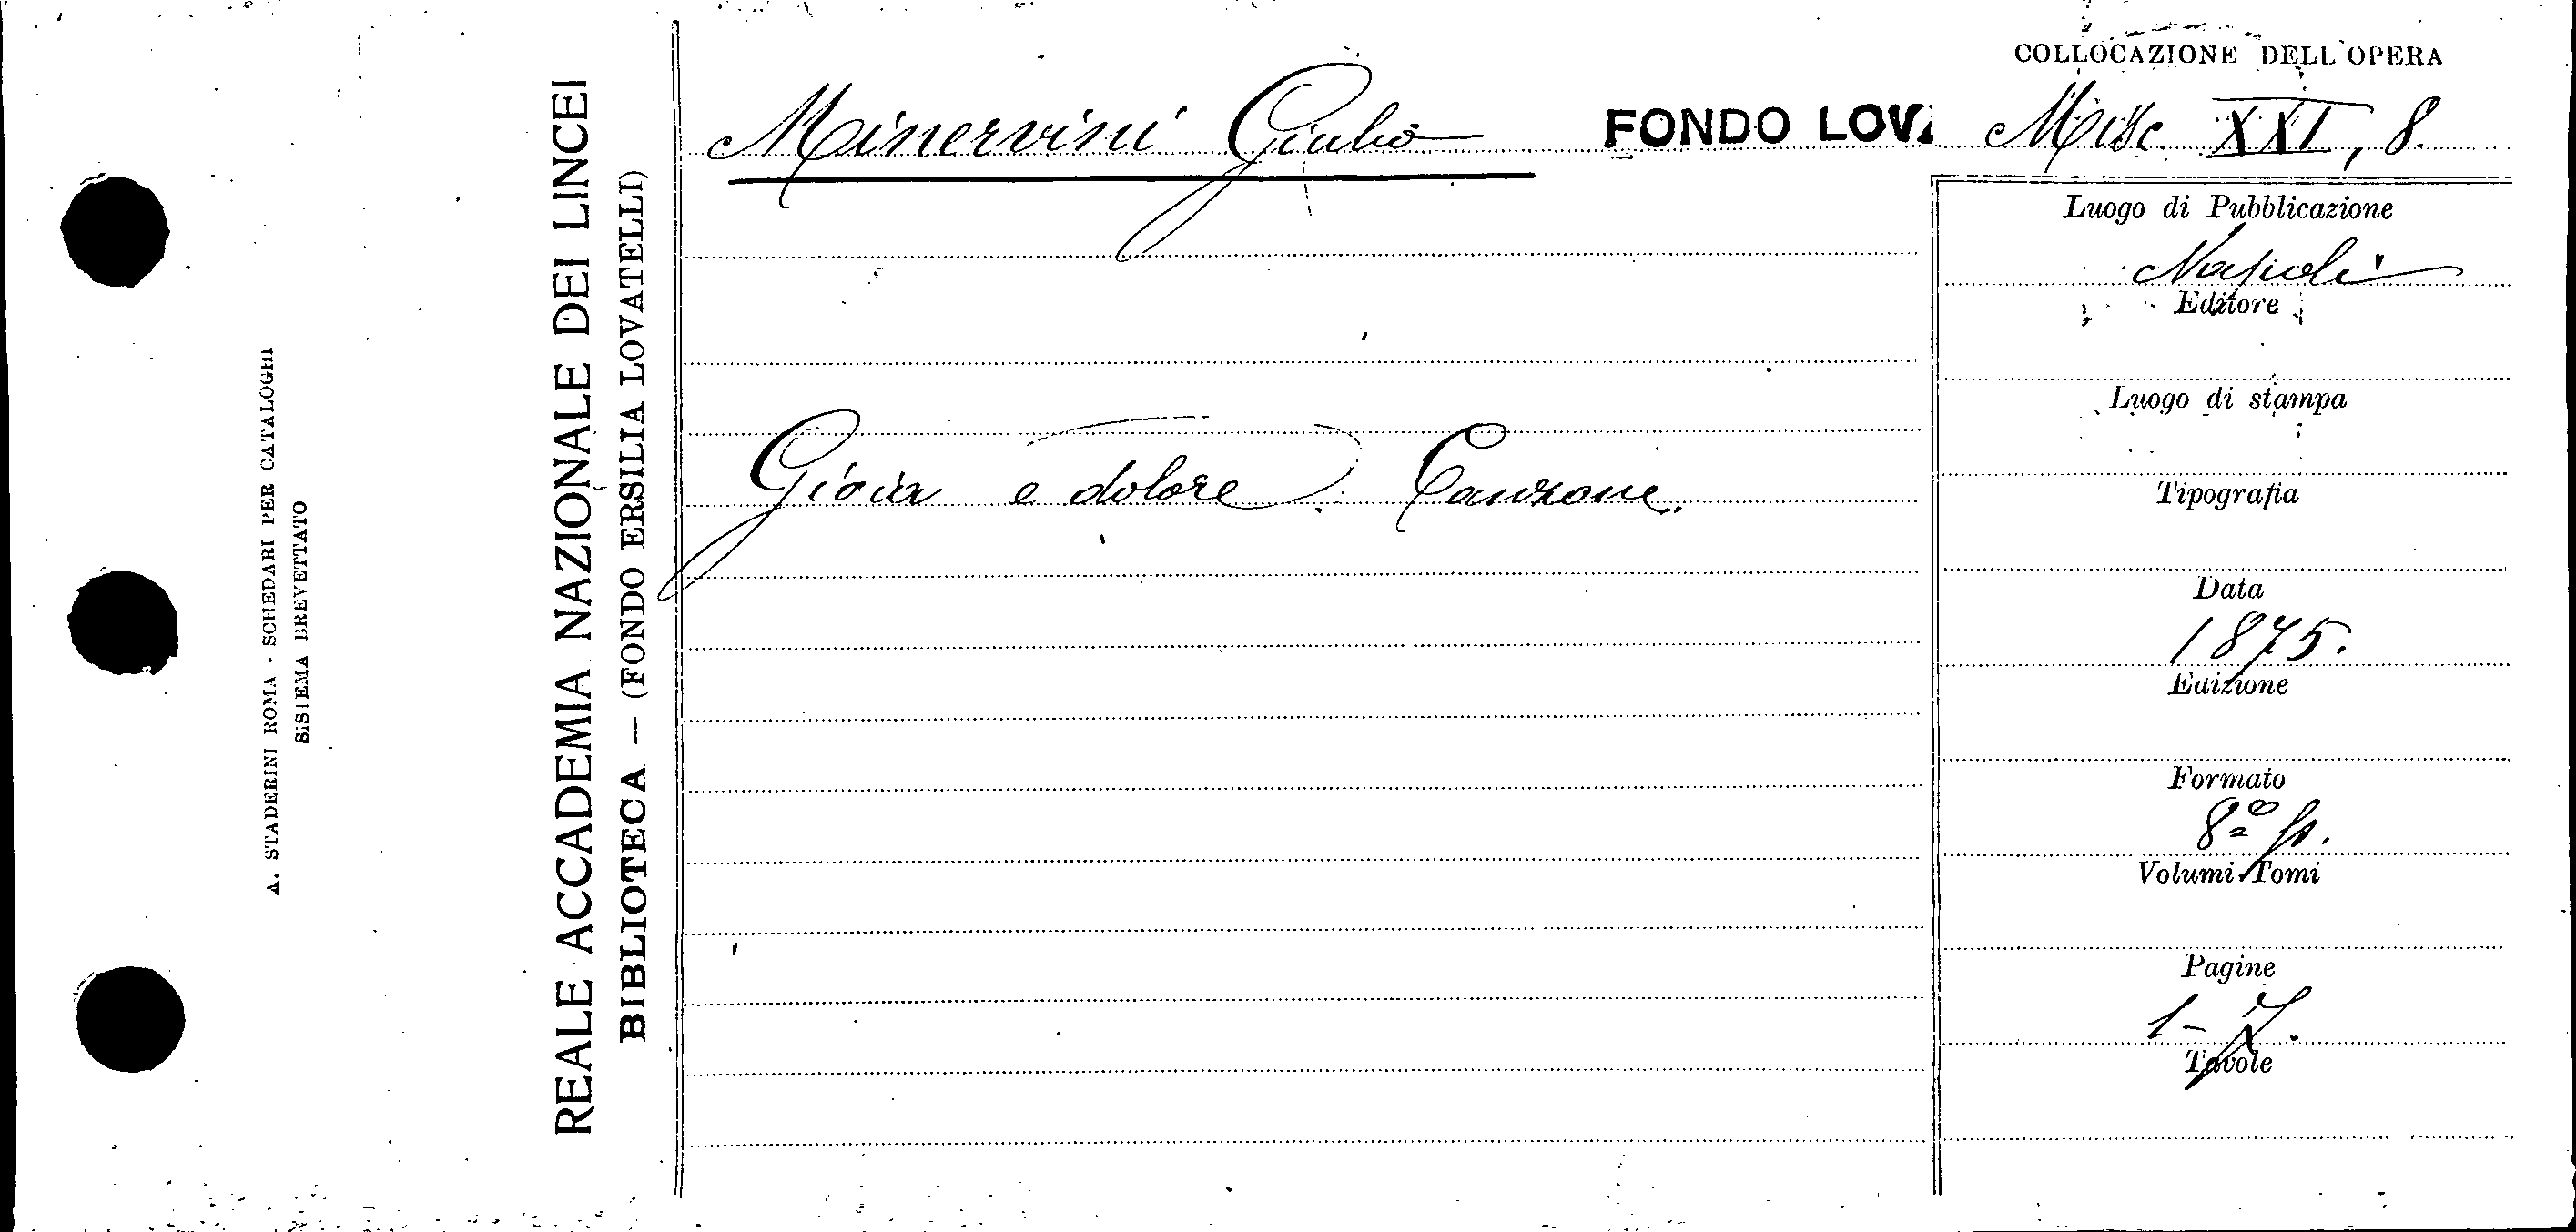 A. STADERINI ROMA - SCHEDARI PER CATALOGHI
SISTEMA BREVETTATO
REALE ACCADEMIA NAZIONALE DEI LINCEI
BIBLIOTECA — (FONDO ERSILIA LOVATELLI)
Minervini Giulio
FONDO LOV.
Gioia e dolore. Canzone.
COLLOCAZIONE DELL'OPERA
Misc. XXI, 8.
Luogo di Pubblicazione
Napoli
Editore
Luogo di stampa
Tipografia
Data
1875.
Edizione
Formato
8º p.
Volumi-Tomi
Pagine
1-7.
Tavole